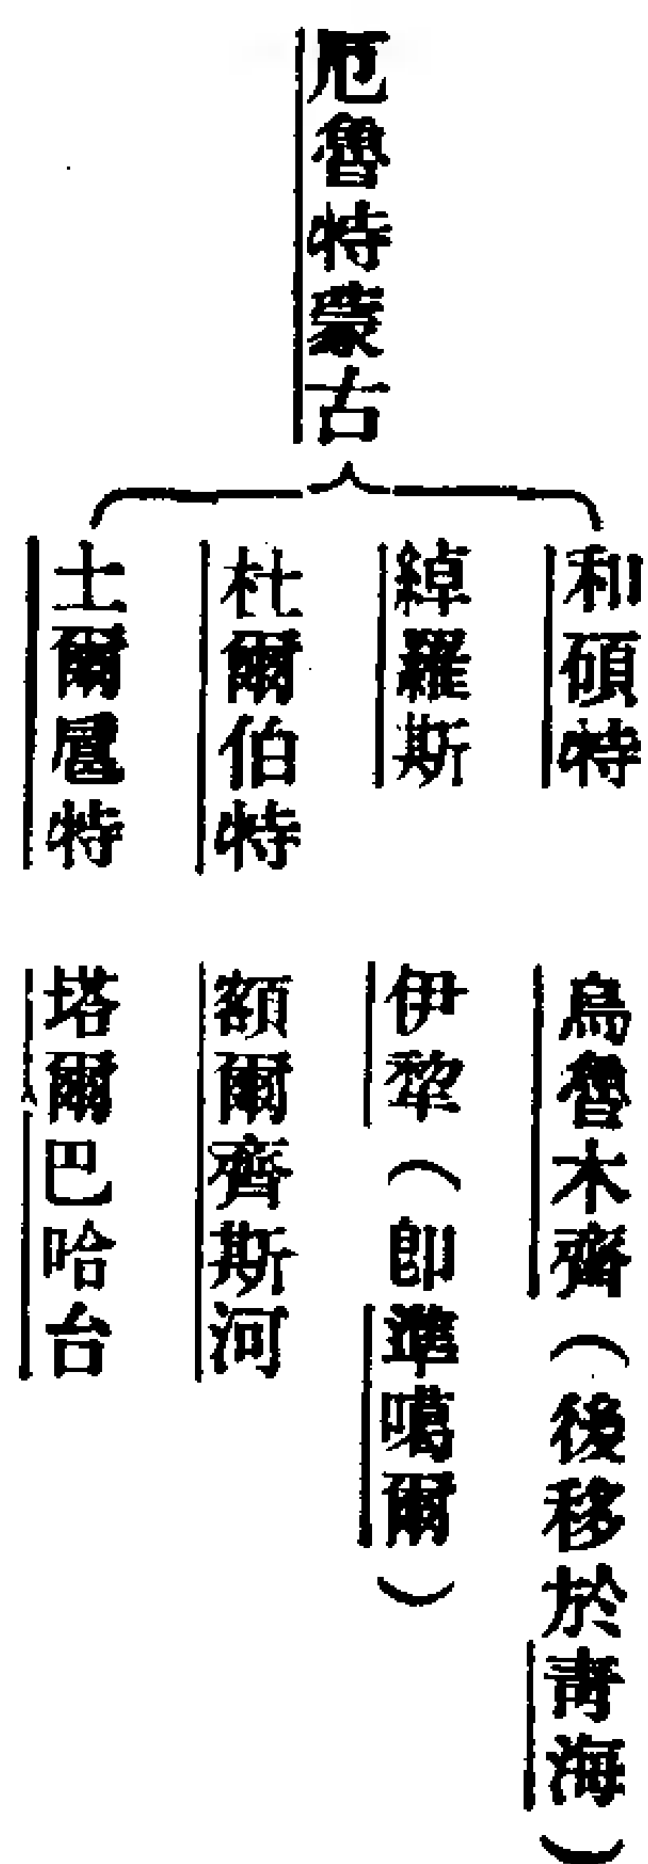 厄魯特蒙古
和碩特　烏魯木齊（後移於青海）
綽羅斯　伊犂（卽準噶爾）
杜爾伯特　額爾齊斯河
土爾扈特　塔爾巴哈台